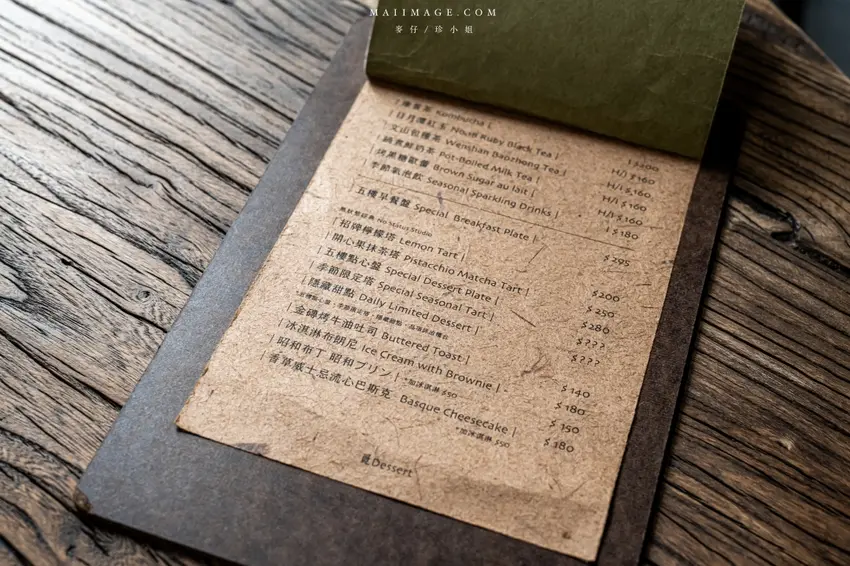 MAIIMAGE.COM
麥仔/珍小姐
Kombucha |
I $200
| 日月潭紅玉 Nbari Ruby Black Tea |
H/I $160
文山包種茶 Wenshan Baozhong Tea |
H/I $160
鍋煮鮮奶茶 Pot-Boiled Milk Tea |
H/I $160
烤黑糖歐蕾 Brown Sugar au lait |
H/I $160
季節氣泡飲 Seasonal Sparkling Drinks |
I $180
| 五樓早餐盤 Special Breakfast Plate |
$295
No Status Studio
| 招牌檸檬塔 Lemon Tart |
$200
| 開心果抹茶塔 Pistacchio Matcha Tart |
$250
| 五樓點心盤 Special Dessert Plate |
$280
| 季節限定塔 Special Seasonal Tart |
$???
| 隱藏甜點 Daily Limited Dessert |
$???
| 金磚烤牛油吐司 Buttered Toast |
$140
| 冰淇淋布朗尼 Ice Cream with Brownie |
$180
| 昭和布丁 昭和プリン | *加冰淇淋 $50
$150
| 香草威士忌流心巴斯克 Basque Cheesecake |
$180
*加冰淇淋 $50
Dessert